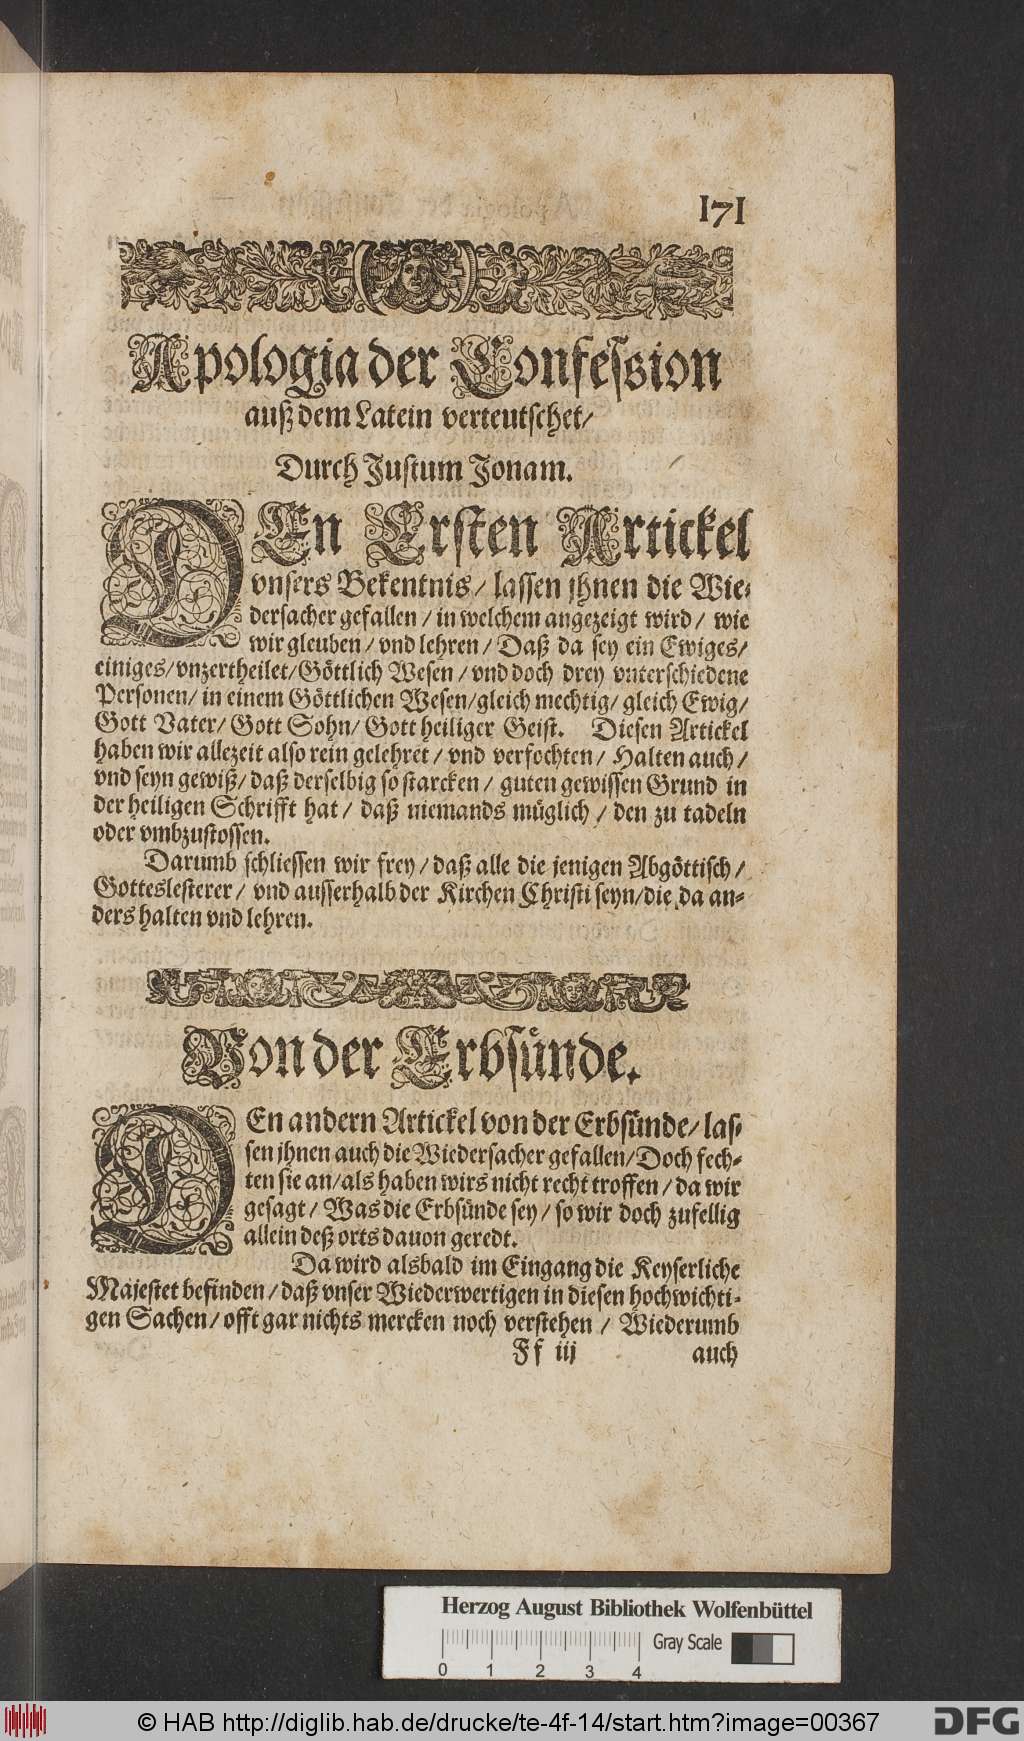 171
Apologia der Confession
auß dem Latein verteutschet/
Durch Justum Jonam.
DEn Ersten Artickel
vnsers Bekentnis/ lassen jhnen die Wie-
dersacher gefallen/ in welchem angezeigt wird/ wie
wir gleuben/ vnd lehren/ Daß da sey ein Ewiges/
einiges/ vnzertheilet/ Göttlich Wesen/ vnd doch drey vnterschiedene
Personen/ in einem Göttlichen Wesen/ gleich mechtig/ gleich Ewig/
Gott Vater/ Gott Sohn/ Gott heiliger Geist. Diesen Artickel
haben wir allezeit also rein gelehret/ vnd verfochten/ Halten auch/
vnd seyn gewiß/ daß derselbig so starcken/ guten gewissen Grund in
der heiligen Schrifft hat/ daß niemands müglich/ den zu tadeln
oder vmbzustossen.
Darumb schliessen wir frey/ daß alle die jenigen Abgöttisch/
Gotteslesterer/ vnd ausserhalb der Kirchen Christi seyn/ die da an-
ders halten vnd lehren.
Von der Erbsünde.
DEn andern Artickel von der Erbsünde/ las-
sen jhnen auch die Wiedersacher gefallen/ Doch fech-
ten sie an/ als haben wirs nicht recht troffen/ da wir
gesagt/ Was die Erbsünde sey/ so wir doch zufellig
allein deß orts dauon geredt.
Da wird alsbald im Eingang die Keyserliche
Majestet befinden/ daß vnser Wiederwertigen in diesen hochwichti-
gen Sachen/ offt gar nichts mercken noch verstehen/ Wiederumb
Ff iij auch
Herzog August Bibliothek Wolfenbüttel
Gray Scale
0 1 2 3 4
© HAB http://diglib.hab.de/drucke/te-4f-14/start.htm?image=00367
DFG